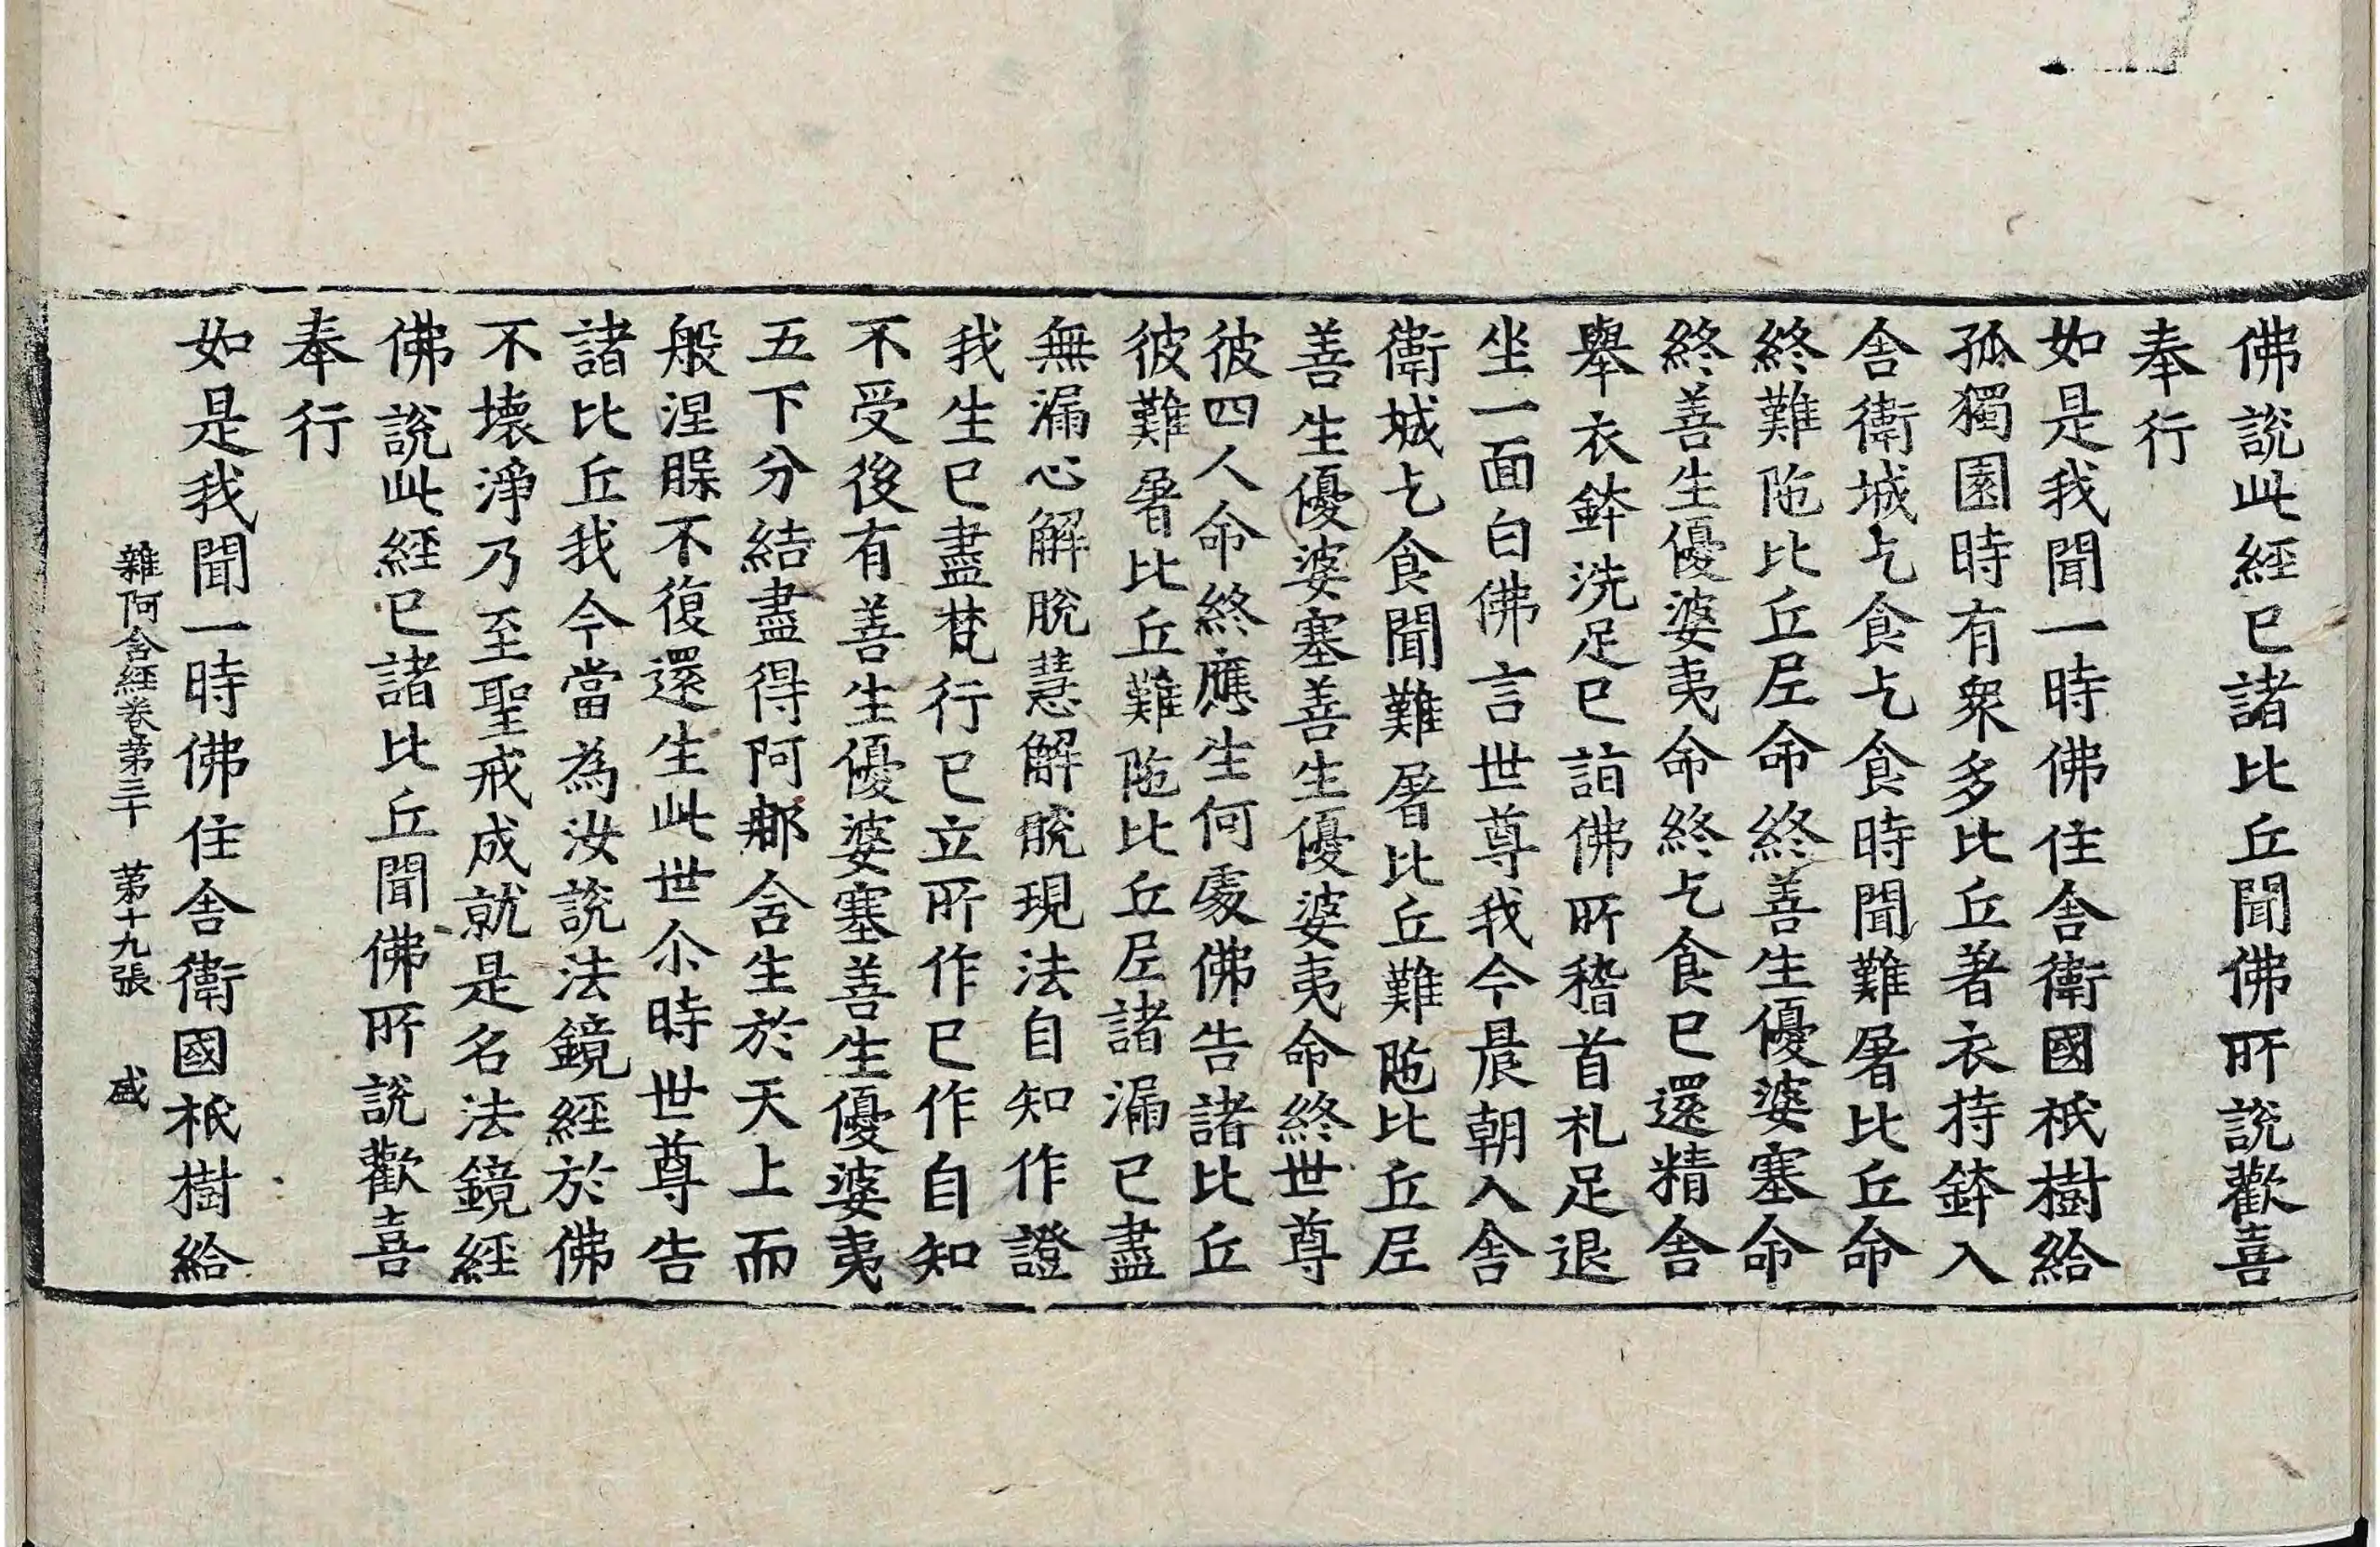 佛說此經已諸比丘聞佛所說歡喜
奉行
如是我聞一時佛住舍衛國祇樹給
孤獨園時有衆多比丘著衣持鉢入
舍衛城乞食乞食時聞難屠比丘命
終難陁比丘尼命終善生優婆塞命
終善生優婆夷命終乞食已還精舍
舉衣鉢洗足已詣佛所稽首礼足退
坐一面白佛言世尊我今晨朝入舍
衛城乞食聞難屠比丘難陁比丘尼
善生優婆塞善生優婆夷命終世尊
彼四人命終應生何處佛告諸比丘
彼難屠比丘難陁比丘尼諸漏已盡
無漏心解脫慧解脫現法自知作證
我生已盡梵行已立所作已作自知
不受後有善生優婆塞善生優婆夷
五下分結盡得阿那含生於天上而
般涅腺不復還生此世尒時世尊告
諸比丘我今當為汝說法鏡經於佛
不壞淨乃至聖戒成就是名法鏡經
佛說此經已諸比丘聞佛所說歡喜
奉行
如是我聞一時佛住舍衛國祇樹給
雜阿含經卷第三十 第十九張 盛